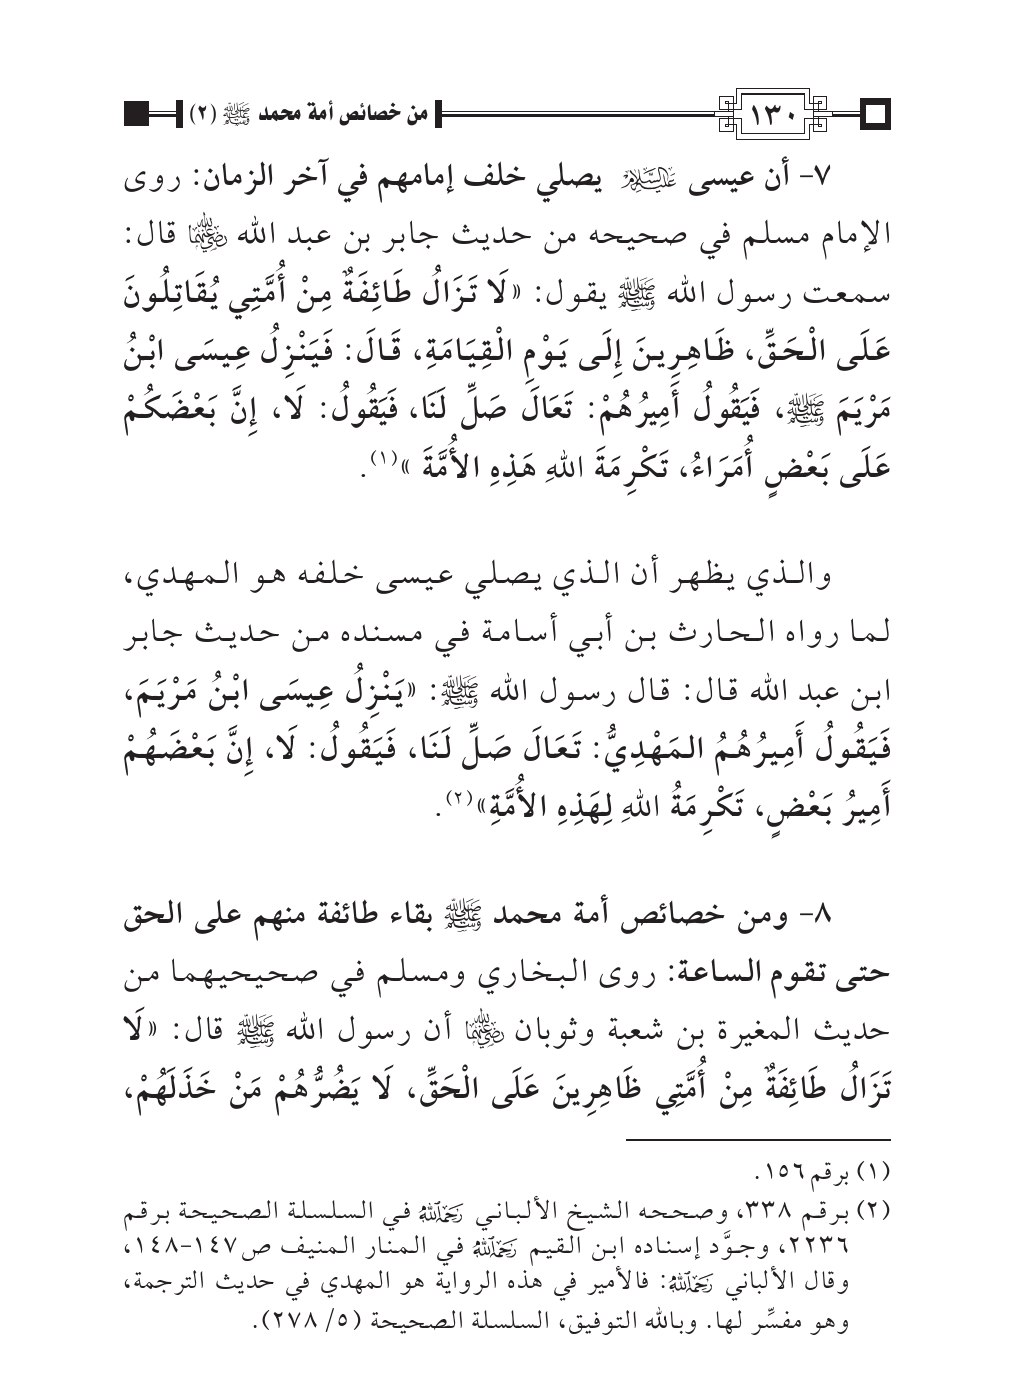 ١٣٠ من خصائص أمة محمد ﷺ (٢)
٧- أن عيسى عليه السلام يصلي خلف إمامهم في آخر الزمان: روى
الإمام مسلم في صحيحه من حديث جابر بن عبد الله رضي الله عنهما قال:
سمعت رسول الله ﷺ يقول: «لَا تَزَالُ طَائِفَةٌ مِنْ أُمَّتِي يُقَاتِلُونَ
عَلَى الْحَقِّ، ظَاهِرِينَ إِلَى يَوْمِ الْقِيَامَةِ، قَالَ: فَيَنْزِلُ عِيسَى ابْنُ
مَرْيَمَ ﷺ، فَيَقُولُ أَمِيرُهُمْ: تَعَالَ صَلِّ لَنَا، فَيَقُولُ: لَا، إِنَّ بَعْضَكُمْ
عَلَى بَعْضٍ أُمَرَاءُ، تَكْرِمَةَ اللهِ هَذِهِ الأُمَّةَ »(١).
والذي يظهر أن الذي يصلي عيسى خلفه هو المهدي،
لما رواه الحارث بن أبي أسامة في مسنده من حديث جابر
ابن عبد الله قال: قال رسول الله ﷺ: «يَنْزِلُ عِيسَى ابْنُ مَرْيَمَ،
فَيَقُولُ أَمِيرُهُمُ المَهْدِيُّ: تَعَالَ صَلِّ لَنَا، فَيَقُولُ: لَا، إِنَّ بَعْضَهُمْ
أَمِيرُ بَعْضٍ، تَكْرِمَةُ اللهِ لِهَذِهِ الأُمَّةِ»(٢).
٨- ومن خصائص أمة محمد ﷺ بقاء طائفة منهم على الحق
حتى تقوم الساعة: روى البخاري ومسلم في صحيحيهما من
حديث المغيرة بن شعبة وثوبان رضي الله عنهما أن رسول الله ﷺ قال: «لَا
تَزَالُ طَائِفَةٌ مِنْ أُمَّتِي ظَاهِرِينَ عَلَى الْحَقِّ، لَا يَضُرُّهُمْ مَنْ خَذَلَهُمْ،
(١) برقم ١٥٦.
(٢) برقم ٣٣٨، وصححه الشيخ الألباني رحمه الله في السلسلة الصحيحة برقم
٢٢٣٦، وجوَّد إسناده ابن القيم رحمه الله في المنار المنيف ص١٤٧-١٤٨،
وقال الألباني رحمه الله: فالأمير في هذه الرواية هو المهدي في حديث الترجمة،
وهو مفسِّر لها. وبالله التوفيق، السلسلة الصحيحة (٥/ ٢٧٨).